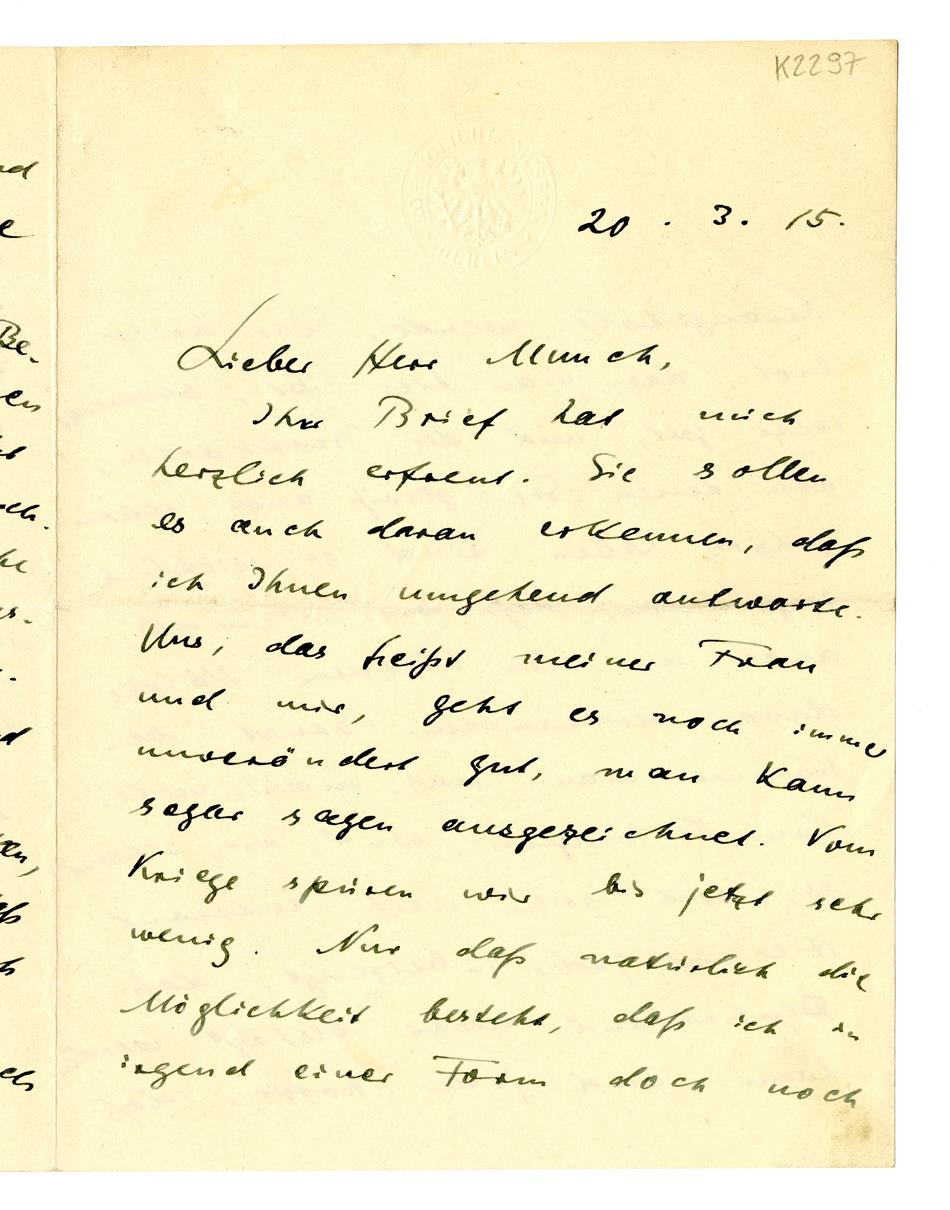 K2297
KÖNIGLICHE MUSEEN
BERLIN
20. 3. 15.
Lieber Herr Munch,
Ihr Brief hat mich
herzlich erfreut. Sie sollen
es auch daran erkennen, daß
ich Ihnen umgehend antworte.
Uns, das heißt meiner Frau
und mir, geht es noch immer
unverändert gut, man kann
sogar sagen ausgezeichnet. Vom
Kriege spüren wir bis jetzt sehr
wenig. Nur daß natürlich die
Möglichkeit besteht, daß ich in
irgend einer Form doch noch